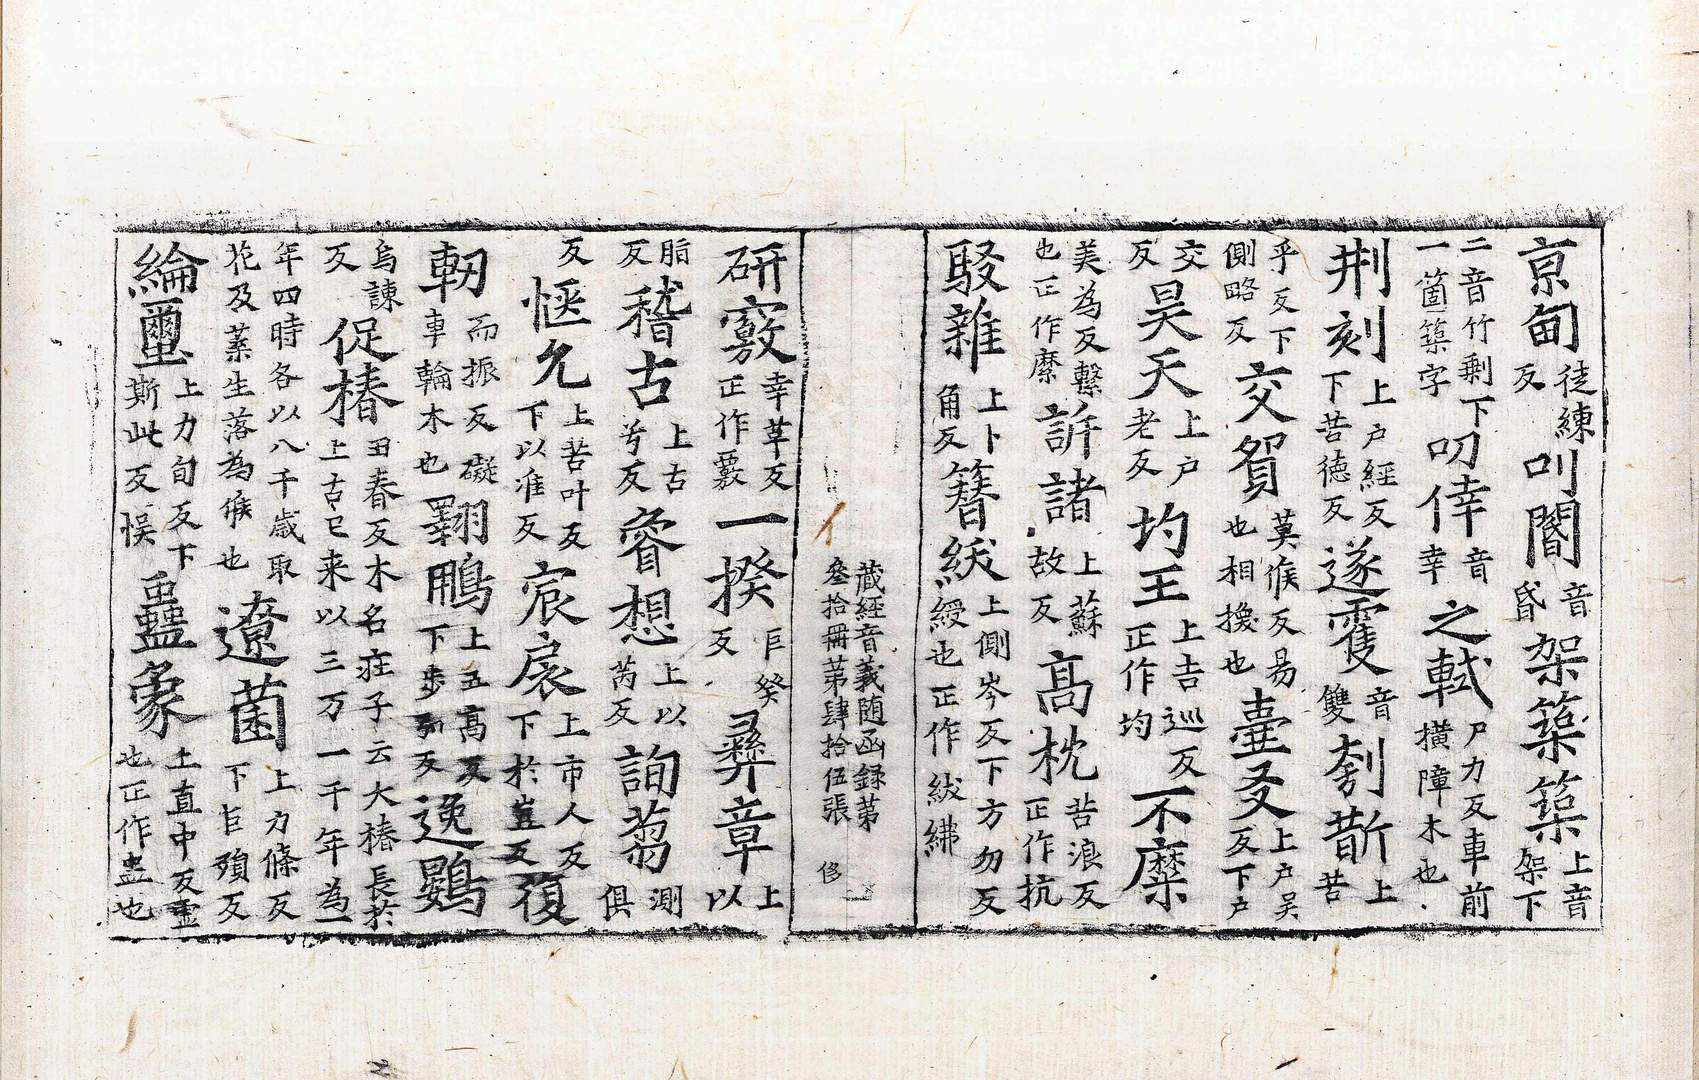 京甸徒練反叫閽音昏架築築上音架下
二音竹剩下一箇築字叨倖音幸之軾尸力反車前横障木也
荆刻上户經反下苦德反遂䨥音雙刳斮上苦
乎反下側略反交貿莫候反易也相換也臺叐上户吴反下户
交反昊天上户老反圴王上吉巡反正作均不縻
美為反繫也正作縻訴諸上蘇故反高枕苦浪反正作抗
駁雜上卜角反簮紱上側岑反下方勿反綬也正作紱紼
藏經音義随函録第叁拾冊苐肆拾伍張 侈
研竅幸革反正作覈一揆巨癸反彞章上以
脂反稽古上古兮反睿想上以芮反詢蒭測俱
反惬允上苦叶反下以准反宸扆上市人反下於豈反復
軔而振反礙車輪木也翺鵬上五高反下步弘反逸鷃
烏諫反促椿丑春反木名庄子云大椿長於上古已来以三万一千年為一
年四時各以八千歳取花及葉生落為候也遼菌上力條反下巨殞反
綸璽上力旬反下斯此反悮蠱象上直中反虚也正作盅也